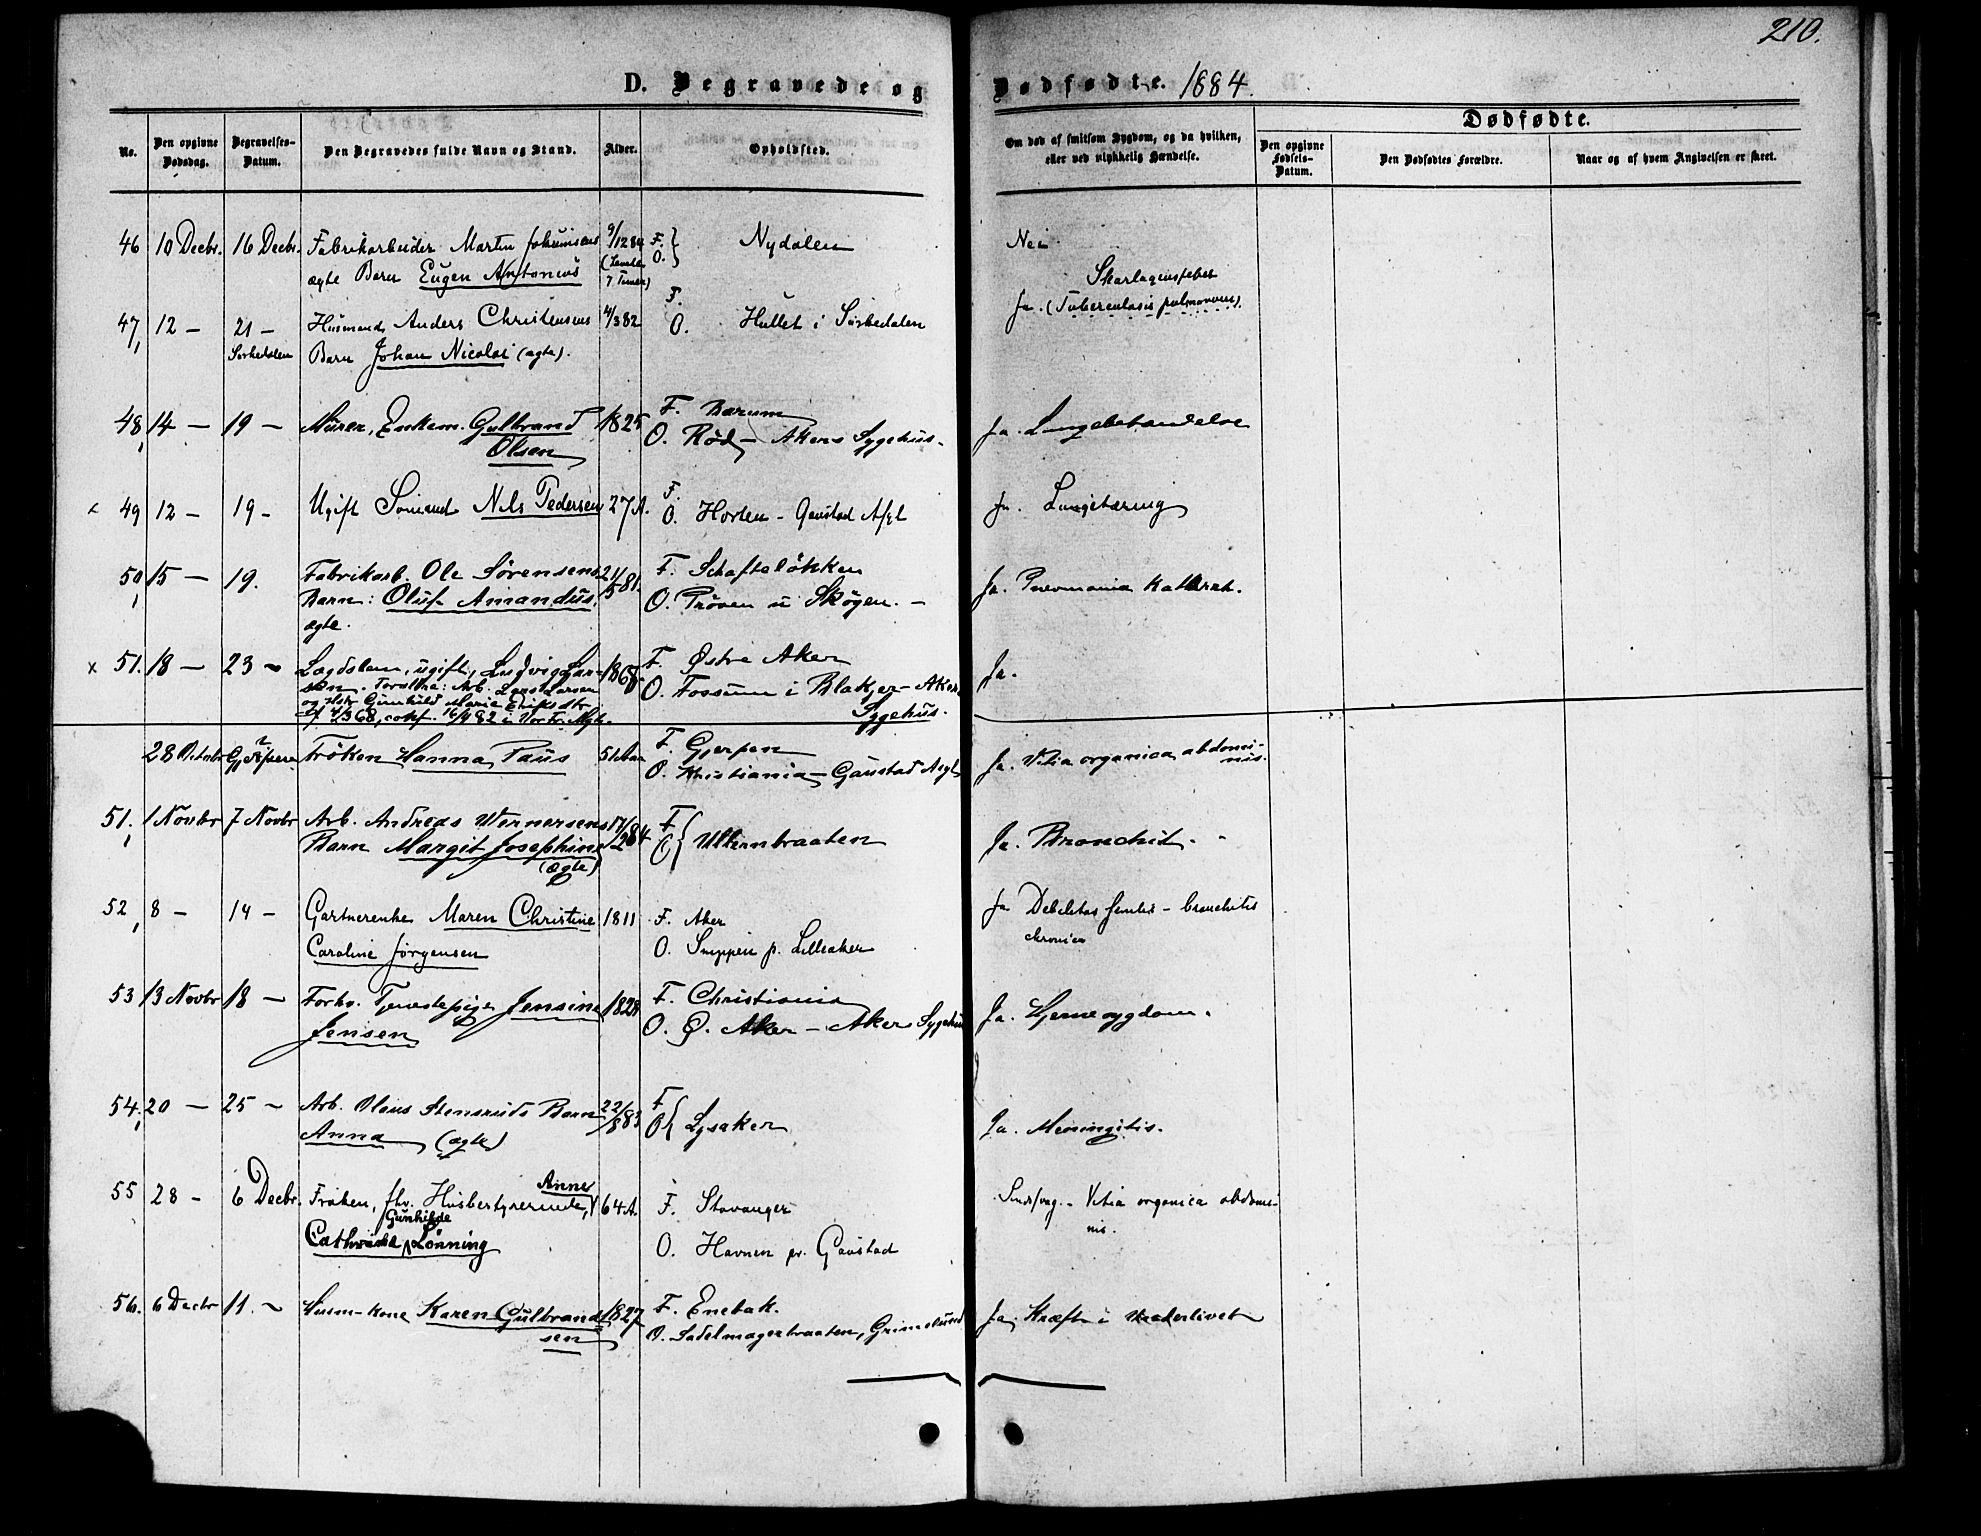 210.
D. Begravede og Dødfødte. 1884.
No.
Den opgivne Dødsdag.
Begravelses-Datum.
Den Begravedes fulde Navn og Stand.
Alder.
Opholdsted.
Om død af smitsom Sygdom, og da hvilken,
eller ved ulykkelig Hændelse.
Dødfødte.
Den opgivne Fødsels-Datum.
Den Dødfødtes Forældre.
Naar og af hvem Angivelsen er skeet.
46 10 Decbr. 16 Decbr. Fabrikarbeider Martin Johannesens 9/12 84 F. } Nydalen Nei
ægte Barn Eugen Antonius (Levede 7 Timer) O.
Skarlagensfeber
47, 12 – 21 – Husmand Anders Christensens 4/3 82 F. Ja. (Tuberculosis pulmonum).
Sørkedalen Barn Johan Nicolai (ægte). O. Hullet i Sørkedalen
48, 14 – 19 – Murer, Enkem. Gulbrand 1825 F. Bærum
Olsen O. Rød – Akers Sygehus. Ja.
x 49 12 – 19 – Ugift Sømand Nils Pedersen 27 A. F.
O. Horten – Gaustad Asyl Ja. Lungetæring
50, 15 – 19. Fabrikarb. Ole Sørensens 21/5 81. F. Schafteløkken
Barn: Oluf Amandus. O. Prøven u Skøyen. – Ja. Pneumonia Katarrh.
ægte.
x 51. 18 – 23 – Lægdslem, ugift, Ludvig Lar- 1868 F. Østre Aker Ja.
sen. Forældre: Arb. Lars Larsen O. Fossum i Blakjer – Akers
og Hstr Gunhild Marie Eriksdtr Sygehus.
4/3 68, conf. 16/4 82 i
28 Octobr Gjerpen Frøken Hanna Paus 51 Aar F. Gjerpen
O. Kristiania – Gaustad Asyl Ja. Vitia organica abdomi-
nis.
51, 1 Novbr 7 Novbr Arb. Andreas Wernersens 17/2 84 F. {
Barn Margit Josephine O. { Ullernbraaten Ja. Bronchit.
(ægte)
52, 8 – 14 – Gartnerenke Maren Christine 1811 F. Aker Ja Debilitas senilis – bronchitis
Caroline Jørgensen O. p. Lilleaker chronica
53 13 Novbr 18 – Forhv. Tjenestepige Jensine 1828 F. Christiania
Jensen O. Ø. Aker – Akers Sygehus Ja. Hjernesygdom.
54, 20 – 25 – Arb. Olaus Stensruds Barn 22/8 83 F {
Anna (ægte) O { Lysaker Ja. Meningitis.
Anne
55 28 – 6 Decbr. Frøken, fhv. Husbestyrerinde, 64 A. F. Stavanger Sindssvag. – Vitia organica abdomi-
Gunhilde nis.
Cathrine Lønning O. Havnen pr. Gaustad
56. 6 Decbr 11. – Husm-kone Karen Gulbrand- 1827 F. Enebak. Ja, Kræft i Underlivet
sen O. Sadelmagerbraaten, Grimelund